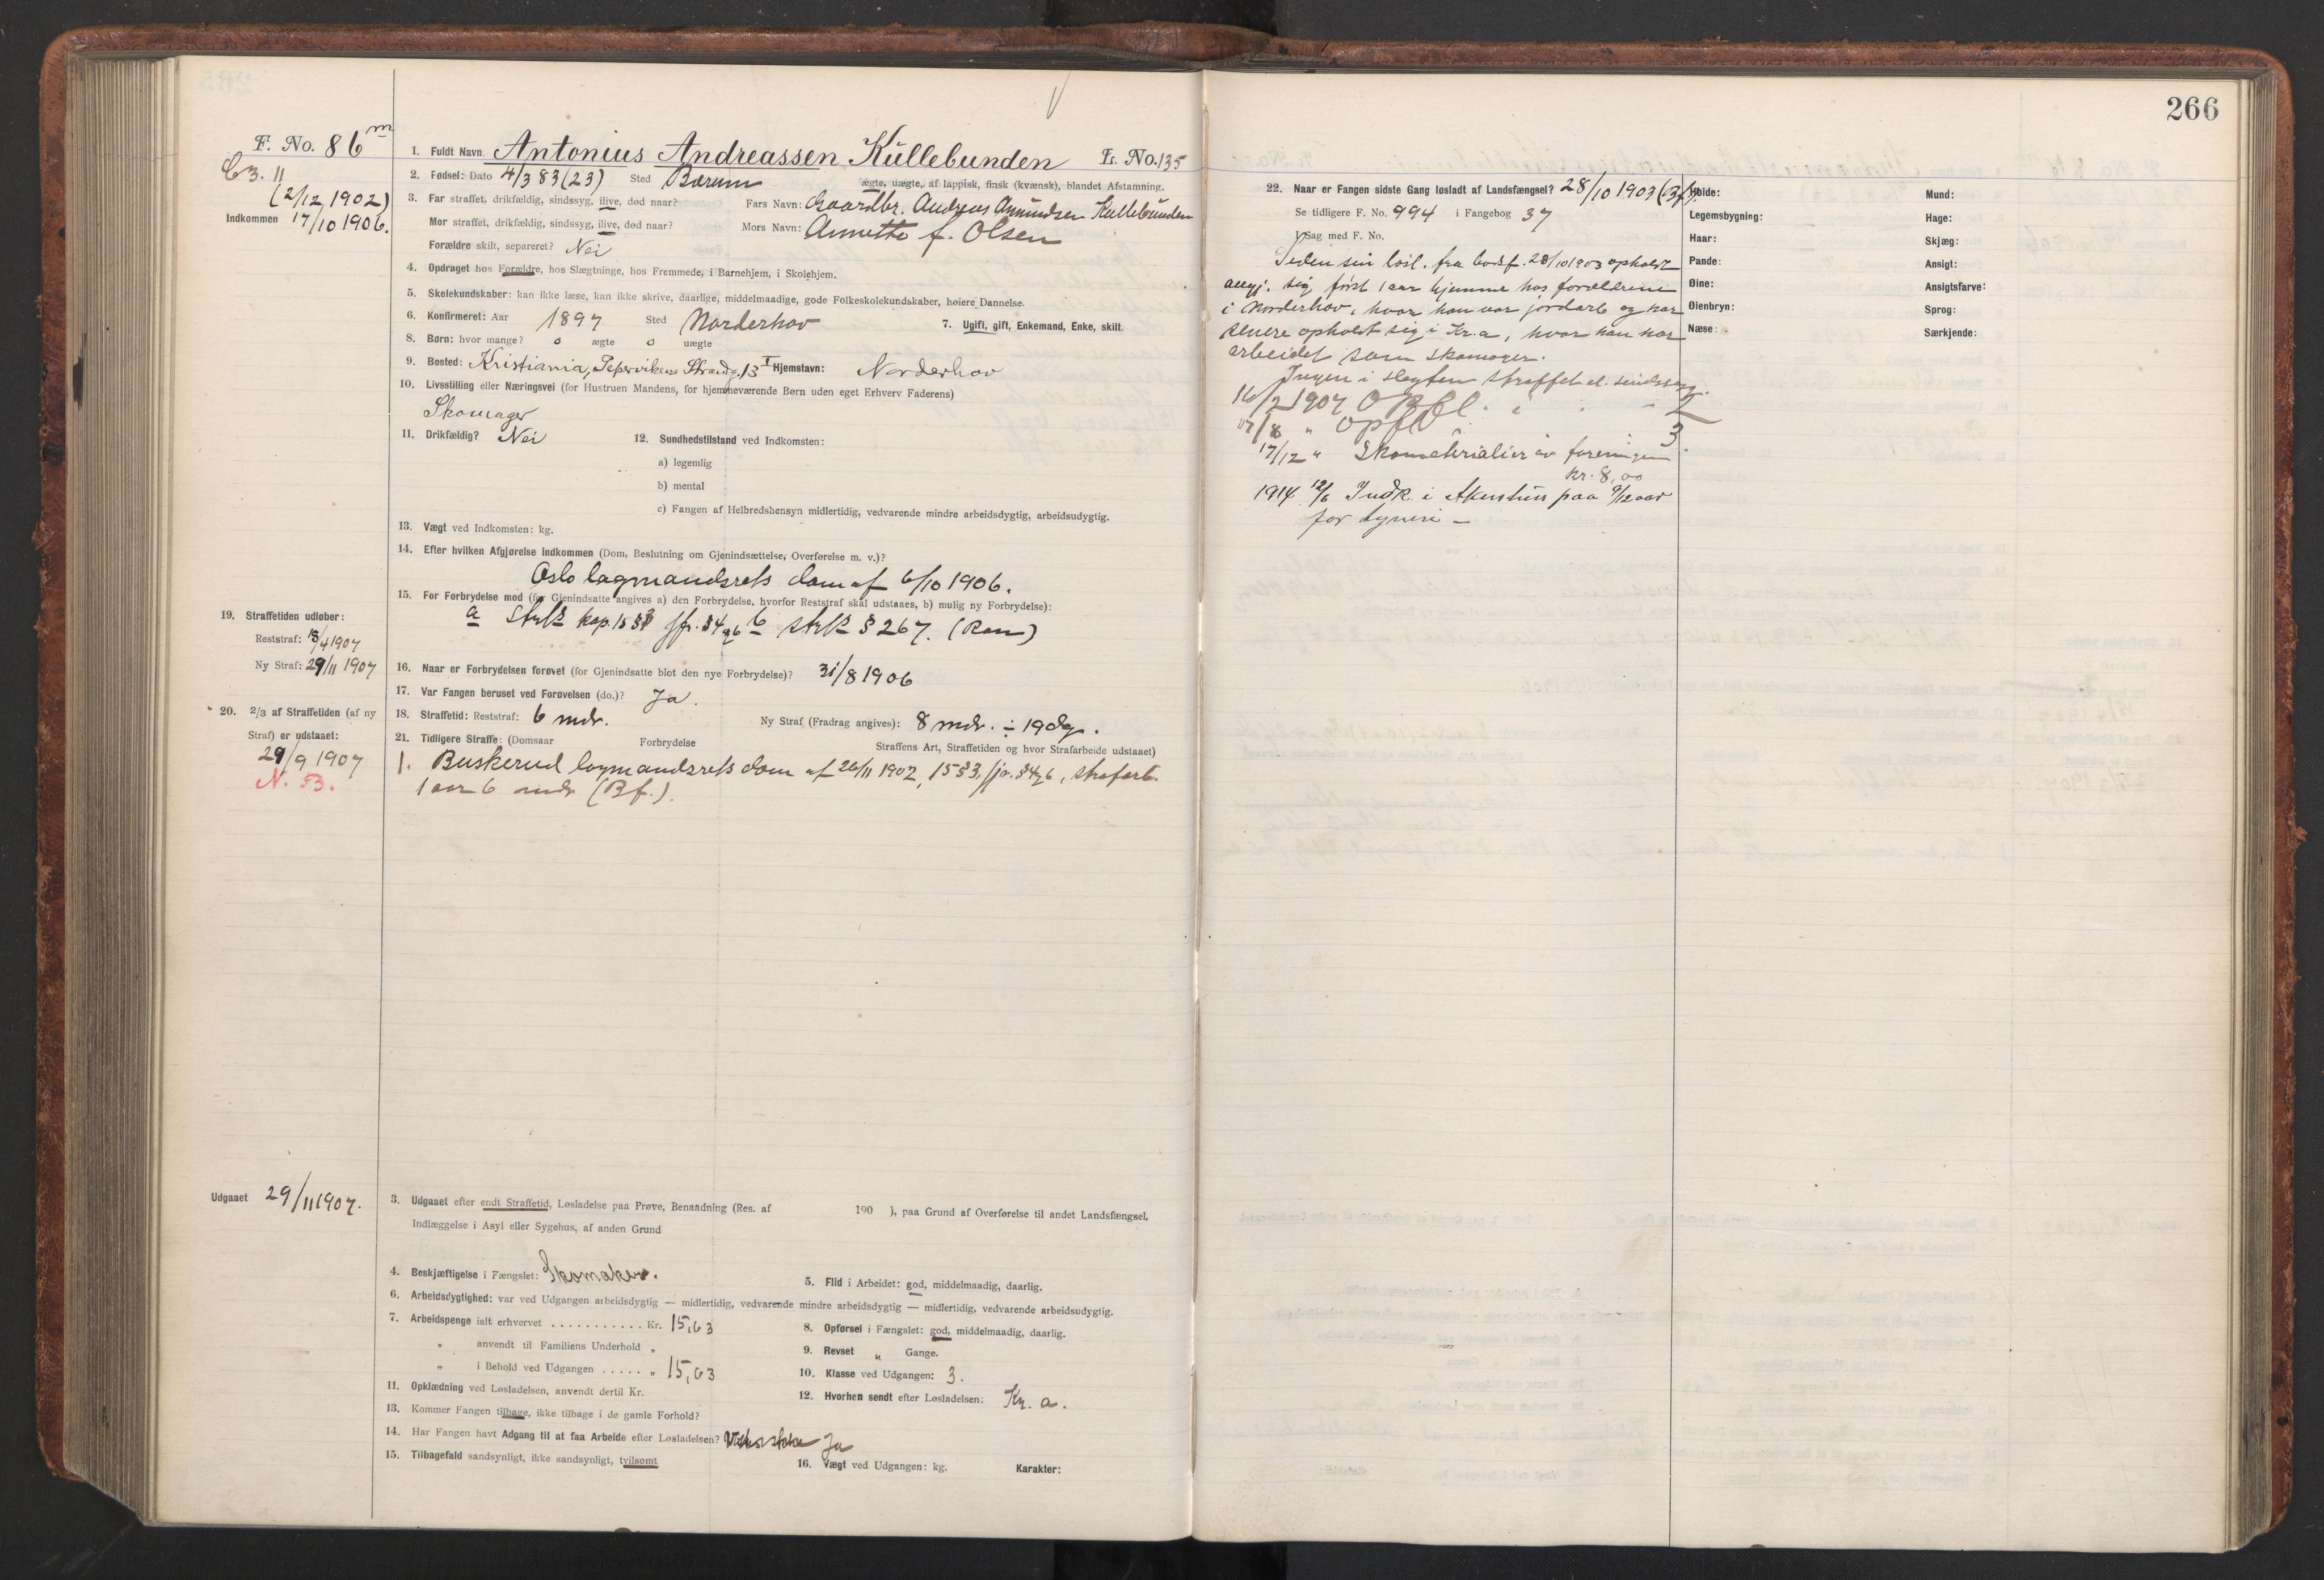 266
F. No. 86 m
C3. 11
(2/12 1902)
Indkommen 17/10 1906.
1. Fuldt Navn Antonius Andreassen Kullebunden Fr. No. 135
2. Fødsel: Dato 4/3 83 (23) Sted Bærum ægte, uægte, af lappisk, finsk (kvænsk), blandet Afstamning.
3. Far straffet, drikfældig, sindssyg, ilive, død naar? Fars Navn: Gaardbr. Andreas Amundsen Kullebunden
Mor straffet, drikfældig, sindssyg, ilive, død naar? Mors Navn: Annette f. Olsen
Forældre skilt, separeret? Nei
4. Opdraget hos Forældre, hos Slægtninge, hos Fremmede, i Barnehjem, i Skolehjem.
5. Skolekundskaber: kan ikke læse, kan ikke skrive, daarlige, middelmaadige, gode Folkeskolekundskaber, høiere Dannelse.
6. Konfirmeret: Aar 1897 Sted Norderhov 7. Ugift, gift, Enkemand, Enke, skilt.
8. Børn: hvor mange? 0 ægte 0 uægte
9. Bosted: Kristiania, Pepervikens Strandg. 13 I Hjemstavn: Norderhov
10. Livsstilling eller Næringsvei (for Hustruen Mandens, for hjemmeværende Børn uden eget Erhverv Faderens)
Skomager
11. Drikfældig? Nei 12. Sundhedstilstand ved Indkomsten:
a) legemlig
b) mental
c) Fangen af Helbredshensyn midlertidig, vedvarende mindre arbeidsdygtig, arbeidsudygtig.
13. Vægt ved Indkomsten: kg.
14. Efter hvilken Afgjørelse indkommen (Dom, Beslutning om Gjenindsættelse, Overførelse m. v.)?
Oslo lagmandsrets dom af 6/10 1906.
15. For Forbrydelse mod (for Gjenindsatte angives a) den Forbrydelse, hvorfor Reststraf skal udstaaes, b) mulig ny Forbrydelse):
a strl kap. 15 § 3 jfr. § 4 b strl § 267. (Ran)
19. Straffetiden udløber:
Reststraf: 18/4 1907
Ny Straf: 29/11 1907
16. Naar er Forbrydelsen forøvet (for Gjenindsatte blot den nye Forbrydelse)? 31/8 1906
17. Var Fangen beruset ved Forøvelsen (do.)? Ja.
18. Straffetid: Reststraf: 6 mdr. Ny Straf (Fradrag angives): 8 mdr. ÷ 19 dg.
20. 2/3 af Straffetiden (af ny
Straf) er udstaaet:
29/9 1907
N. B.
21. Tidligere Straffe: (Domsaar Forbrydelse Straffens Art, Straffetiden og hvor Strafarbeide udstaaet)
1. Buskerud lagmandsrets dom af 26/11 1902, 15 § 3, jfr. § 4, strafarb.
1 aar 6 mdr (Bf.).
Udgaaet 29/11 1907.
3. Udgaaet efter endt Straffetid, Løsladelse paa Prøve, Benaadning (Res. af 190 ), paa Grund af Overførelse til andet Landsfængsel,
Indlæggelse i Asyl eller Sygehus, af anden Grund
4. Beskjæftigelse i Fængslet: Skomaker.
5. Flid i Arbeidet: god, middelmaadig, daarlig.
6. Arbeidsdygtighed: var ved Udgangen arbeidsdygtig — midlertidig, vedvarende mindre arbeidsdygtig — midlertidig, vedvarende arbeidsudygtig.
7. Arbeidspenge ialt erhvervet . . . . . . . . . . . Kr. 15,63
8. Opførsel i Fængslet: god, middelmaadig, daarlig.
„ anvendt til Familiens Underhold „
9. Revset „ Gange.
„ i Behold ved Udgangen . . . . . „ 15,63
10. Klasse ved Udgangen: 3.
11. Opklædning ved Løsladelsen, anvendt dertil Kr.
12. Hvorhen sendt efter Løsladelsen: Kr. a.
13. Kommer Fangen tilbage, ikke tilbage i de gamle Forhold?
14. Har Fangen havt Adgang til at faa Arbeide efter Løsladelsen? Ja
15. Tilbagefald sandsynligt, ikke sandsynligt, tvilsomt
16. Vægt ved Udgangen: kg. Karakter:
22. Naar er Fangen sidste Gang løsladt af Landsfængsel? 28/10 1903 (Bf).
Se tidligere F. No. 994 i Fangebog 37
I Sag med F. No.
Siden sin løsl. fra bodsf. 28/10 1903 opholdt
angj. sig først 1 aar hjemme hos forældrene
i Norderhov, hvor han var jordarb og har
senere opholdt sig i Kr.a, hvor han har
arbeidet som skomager.
Ingen i slegten straffet el. sindssyg.
16/2 1907 Opfl. i 2
17/8 " opfl i 3
17/12 " Skomaterialier av foreningen
kr. 8,00
1914 12/6 Indk. i Akershus paa 9/12 aar
for tyveri —
Høide:
Legemsbygning:
Haar:
Pande:
Øine:
Øienbryn:
Næse:
Mund:
Hage:
Skjæg:
Ansigt:
Ansigtsfarve:
Sprog:
Særkjende: